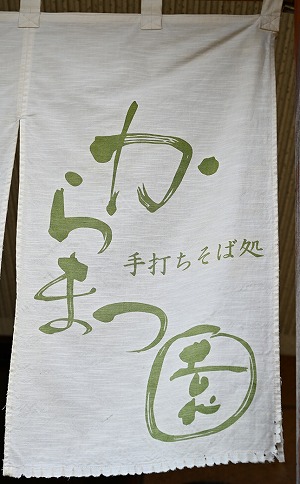 からまつ園
手打ちそば処